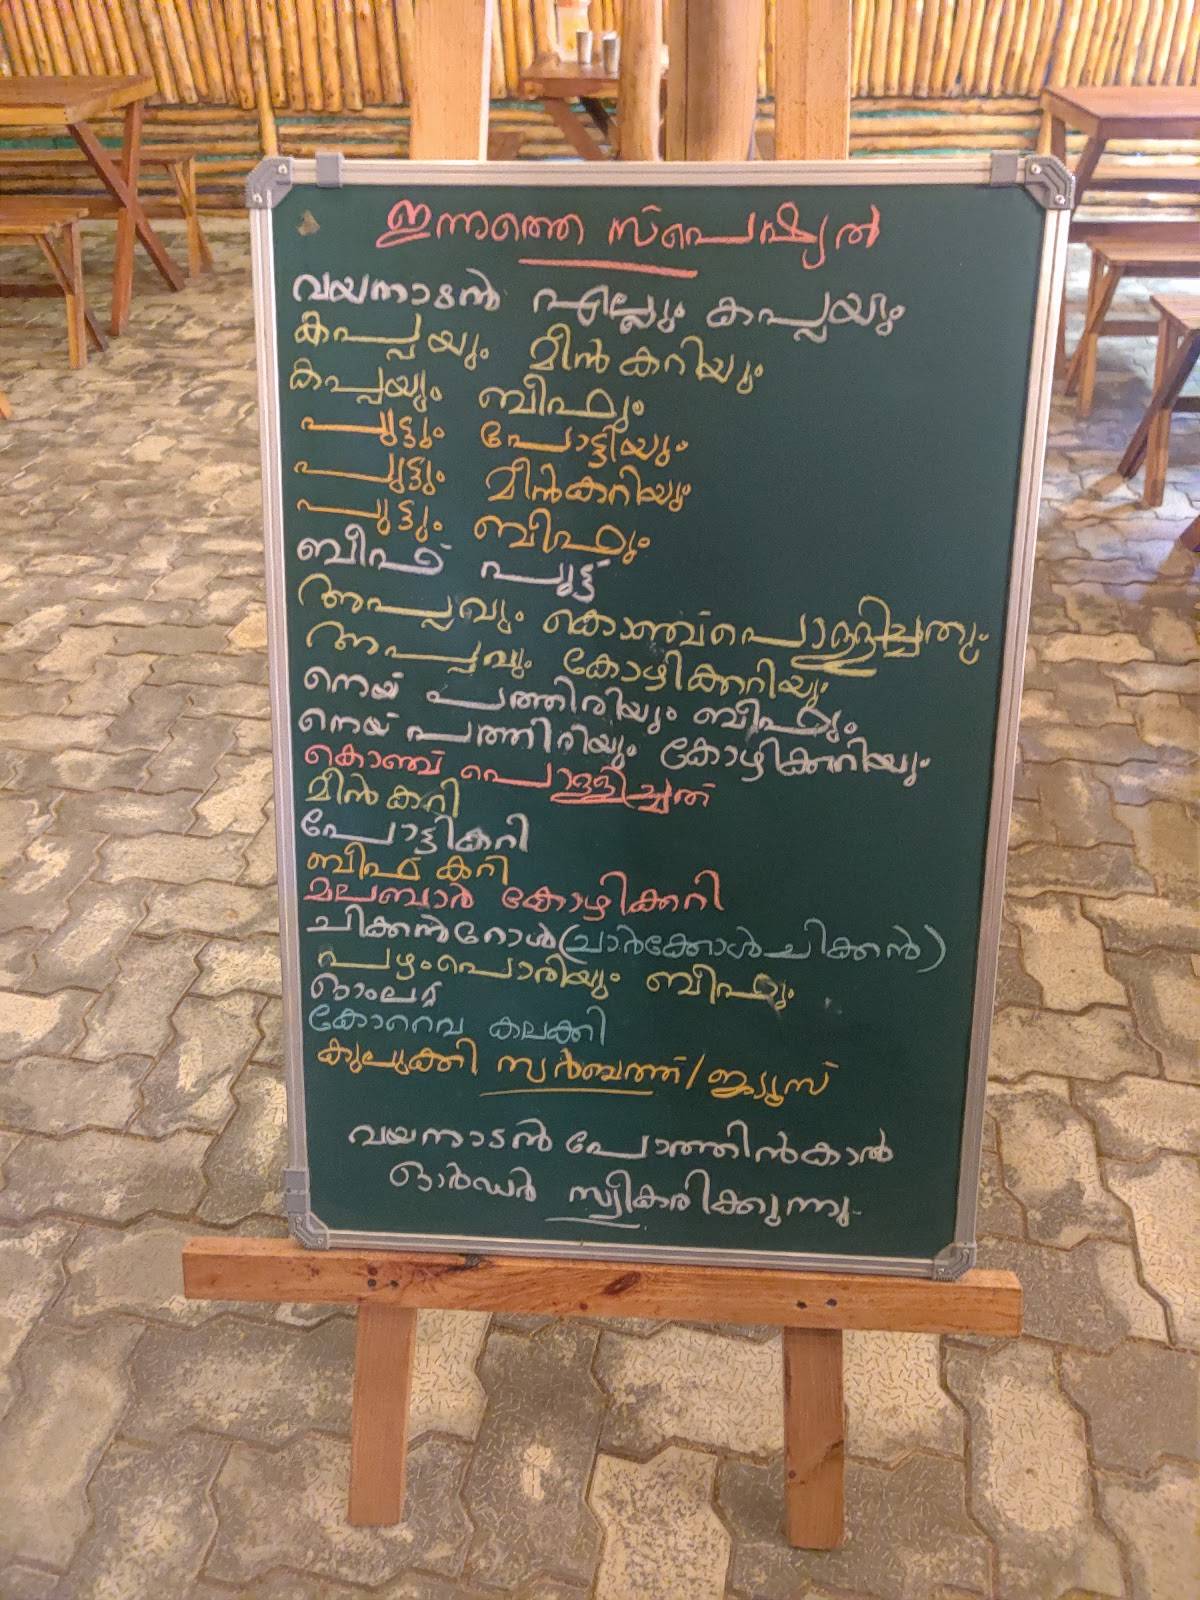 ഇന്നത്തെ സ്പെഷ്യൽ
വയനാടൻ എല്ലും കപ്പയും
കപ്പയും മീൻ കറിയും
കപ്പയും ബീഫും
പുട്ടും പോട്ടിയും
പുട്ടും മീൻകറിയും
പുട്ടും ബീഫും
ബീഫ് പുട്ട്
അപ്പവും കൊഞ്ച് പൊള്ളിച്ചതും
അപ്പവും കോഴിക്കറിയും
നെയ് പത്തിരിയും ബീഫും
നെയ് പത്തിരിയും കോഴിക്കറിയും
കൊഞ്ച് പൊള്ളിച്ചത്
മീൻ കറി
പോട്ടികറി
ബീഫ് കറി
മലബാർ കോഴിക്കറി
ചിക്കൻറോൾ (ചാർക്കോൾ ചിക്കൻ)
പഴംപൊരിയും ബീഫും
ഓംലറ്റ്
കോറൈവ കലക്കി
കുലുക്കി സർബത്ത്/ജ്യൂസ്
വയനാടൻ പോത്തിൻകാൽ
ഓർഡർ സ്വീകരിക്കുന്നു.